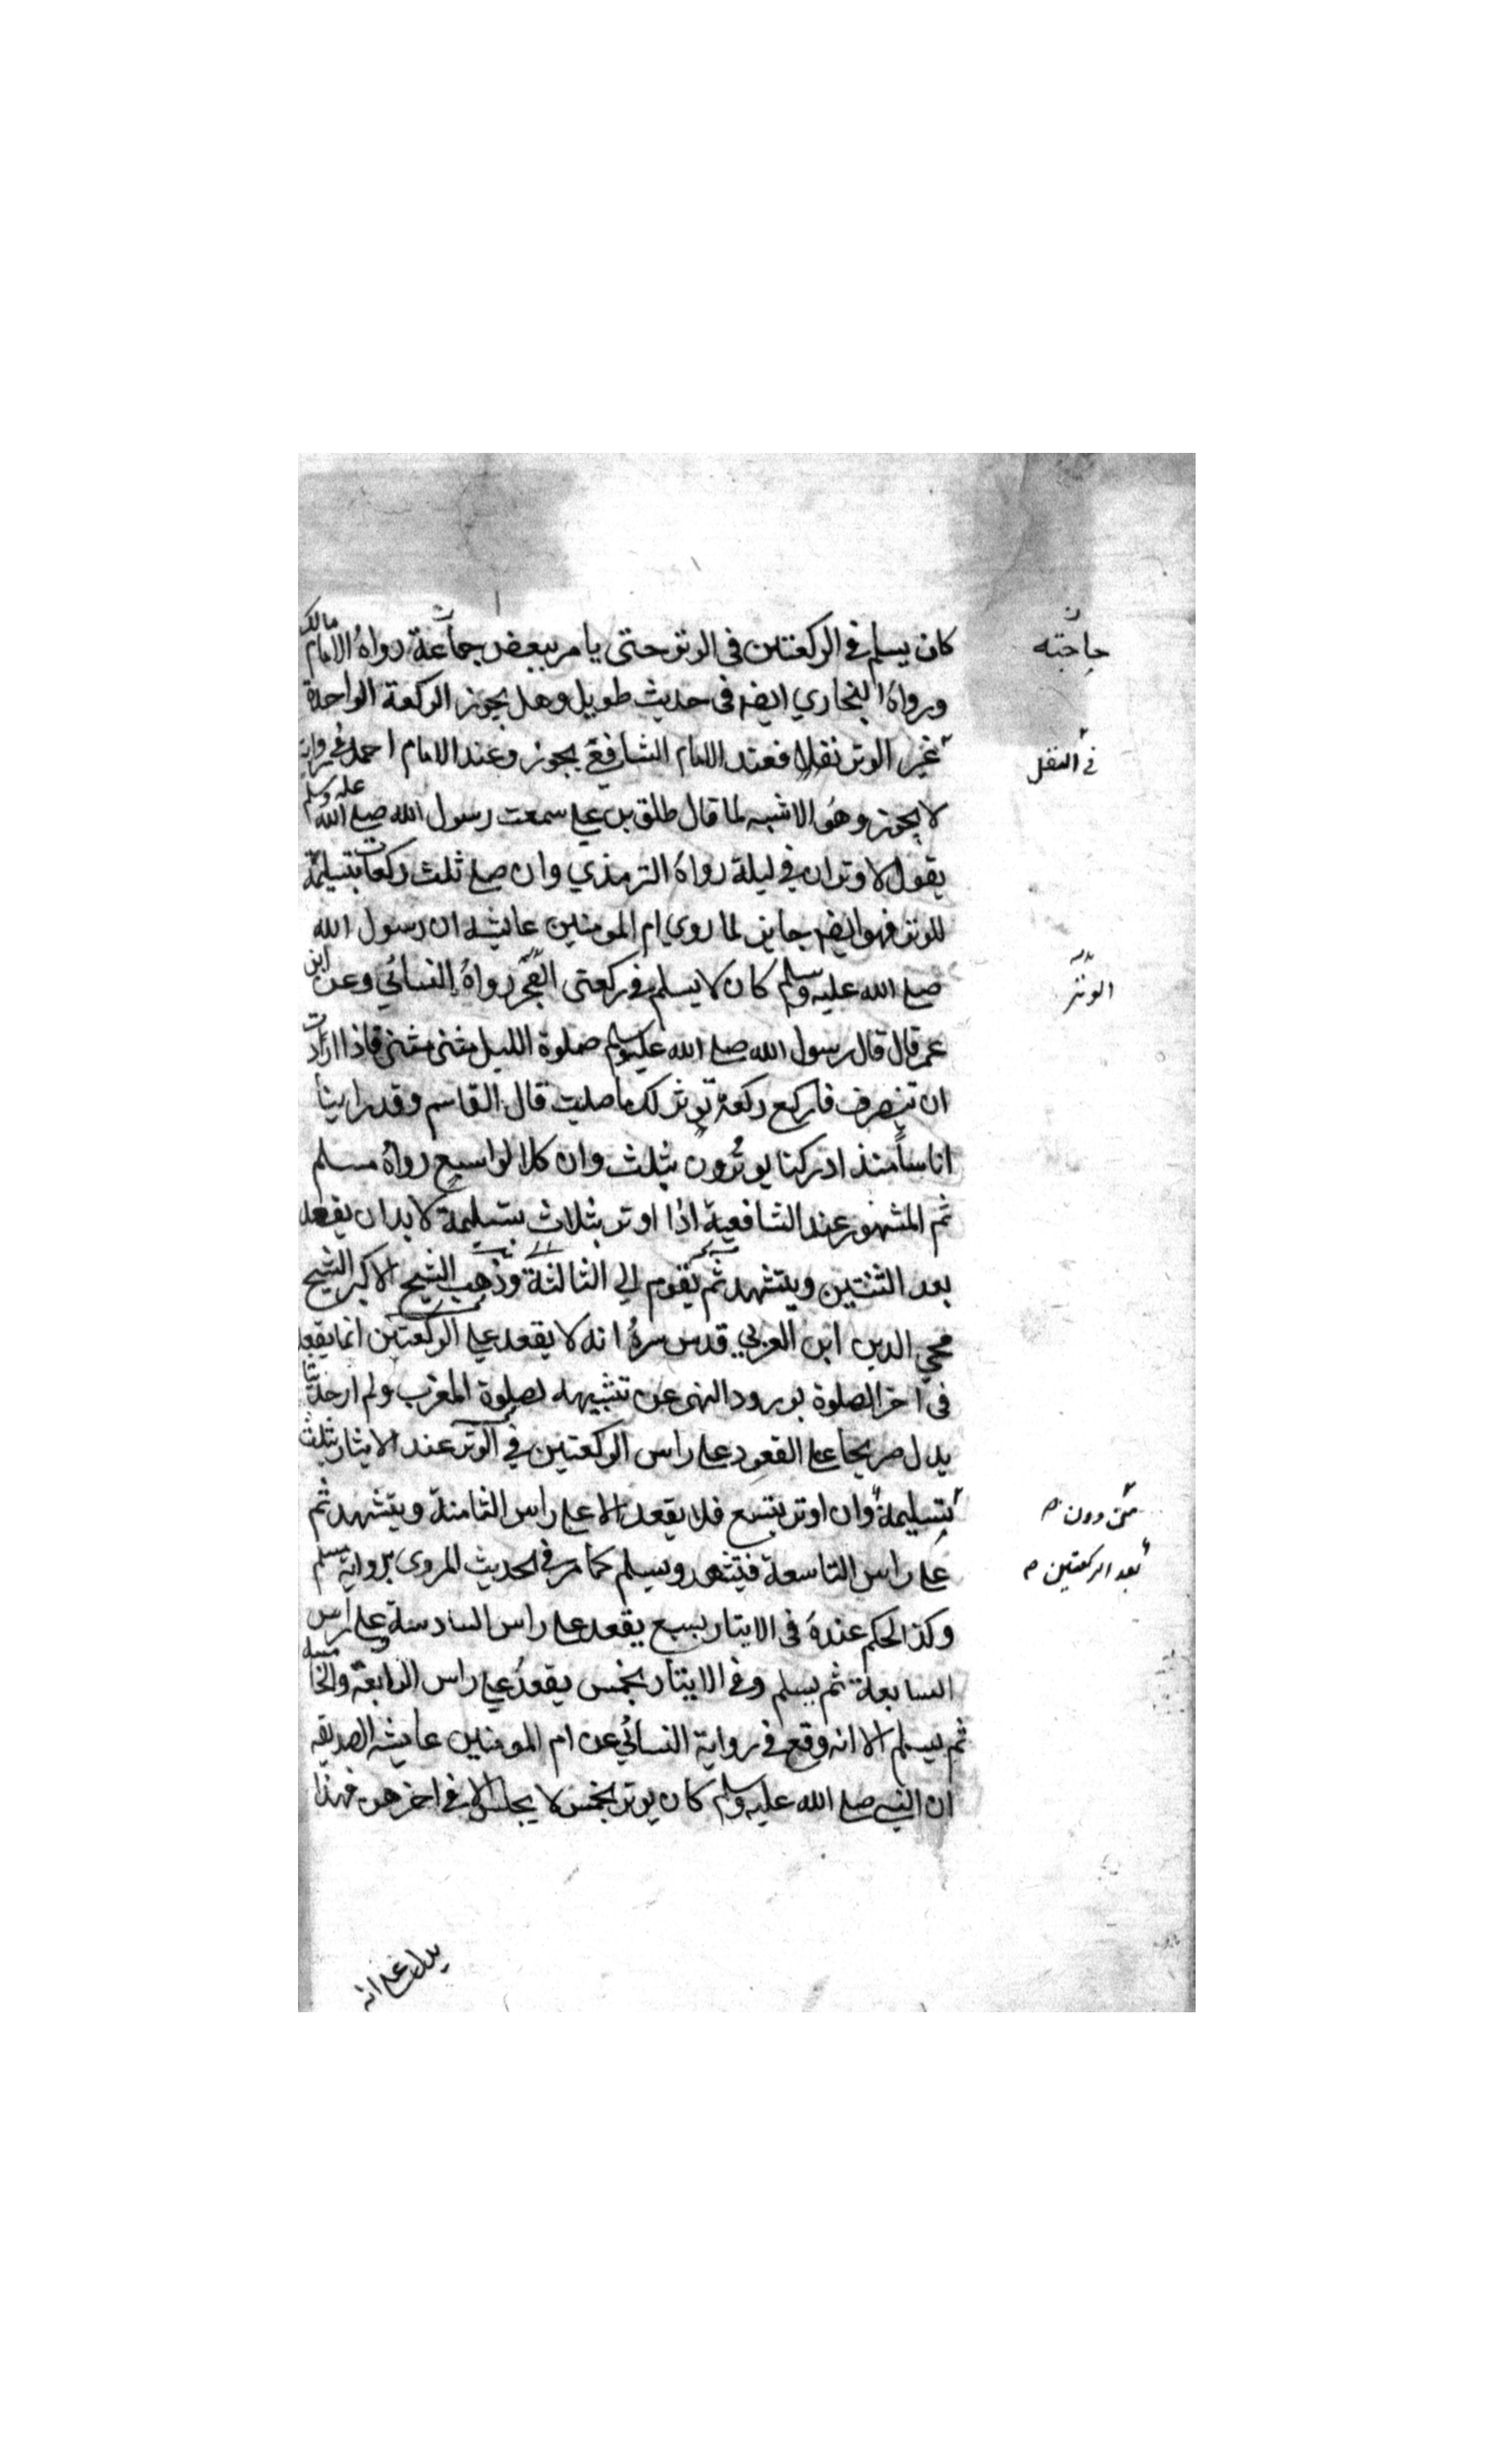 كان يسلم في الركعتين في الوتر حتى يامر ببعض جماعة رواه الامام مالك
حاجته
ورواه البخاري ايضه في حديث طويل وهل يجوز الركعة الواحدة
غير الوتر نفلا فعند الامام الشافعي يجوز وعند الامام احمد في رواية
في النفل
لا يجوز وهو الاشبه لما قال طلق بن علي سمعت رسول الله صلي الله عليه وسلم
يقول لا وتران في ليلة رواه الترمذي وان صلي ثلث ركعات بتسليمة
للوتر فهو ايضه جايز لما روي ام المومنين عايشه ان رسول الله
صلي الله عليه وسلم كان لا يسلم في ركعتى الفجر رواه النسائي وعن ابن
الوتر
عمر قال قال رسول الله صلي الله عليه وسلم صلوة الليل مثنى مثنى فاذا اردت
ان تنصرف فاركع ركعة توتر لك ما صليت قال القاسم وقد راينا
اناسا منذ ادركنا يوترون بثلث وان كلا لواسع رواه مسلم
ثم المشهور عند الشافعية اذا اوتر بثلاث بتسليمة لا بد ان يقعد
بعد الثنتين ويتشهد ثم يقوم الي الثالثة وذهب الشيخ الاكبر الشيخ
محي الدين ابن العربي قدس سره انه لا يقعد علي الركعتين انما يقعد
في اخر الصلوة لورود النهى عن تشبيهه لصلوة المغرب ولم ار حديثا
يدل صريحا علي القعود علي راس الركعتين في الوتر عند الايثار بثلث
بتسليمة وان اوتر بتسع فلا يقعد الا علي راس الثامنة ويتشهد ثم
علي راس التاسعة فيتشهد ويسلم كما مر في الحديث المروى برواية مسلم
بعد الركعتين
وكذا الحكم عنده في الايتار بسبع يقعد علي راس السادسة وعلي راس
السابعة ثم يسلم وفي الايتار بخمس يقعد علي راس الرابعة والخامسة
ثم يسلم الا انه وقع في رواية النسائي عن ام المومنين عايشه الصديقه
ان النبي صلي الله عليه وسلم كان يوتر بخمس لا يجلس الا في اخرهن فهذا
يدل علي انه